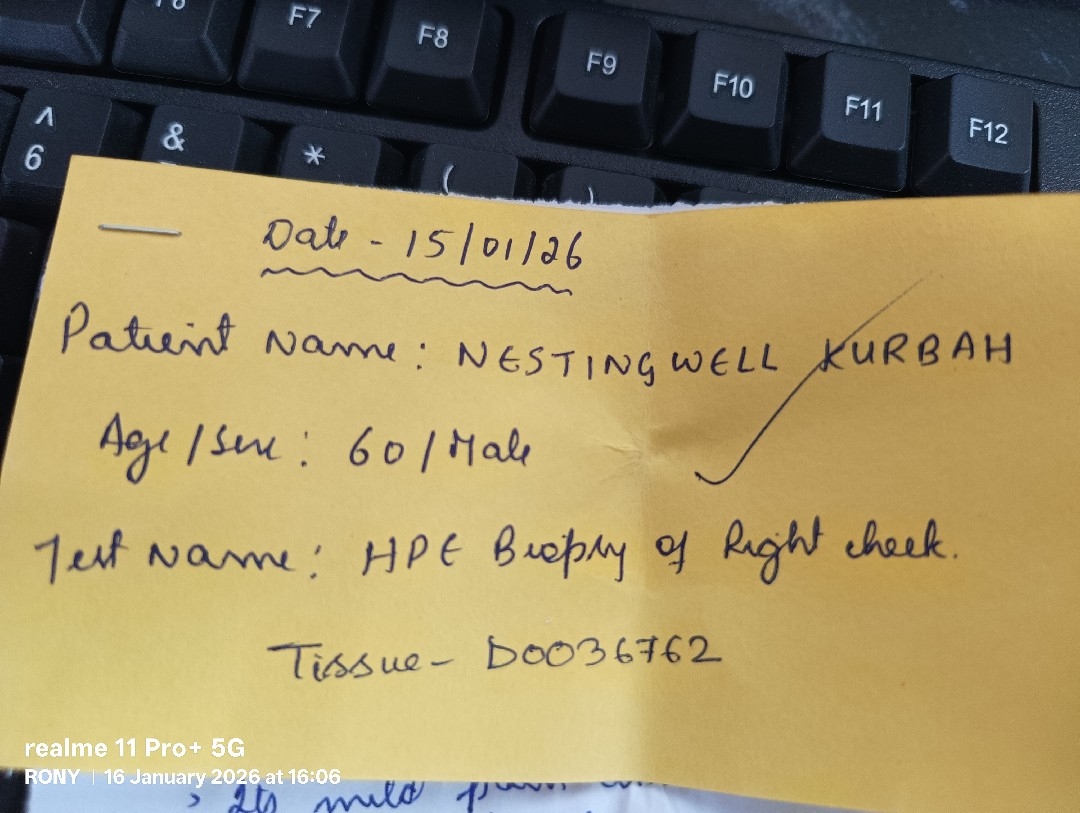 F7 F8 F9 F10 F11 F12
^ & * ( )
6
Date - 15/01/26
Patient Name : NESTINGWELL KURBAH
Age / Sex : 60 / Male
Test Name : HPE Biopsy of Right cheek.
Tissue - D0036762
realme 11 Pro+ 5G
RONY | 16 January 2026 at 16:06
Its mild